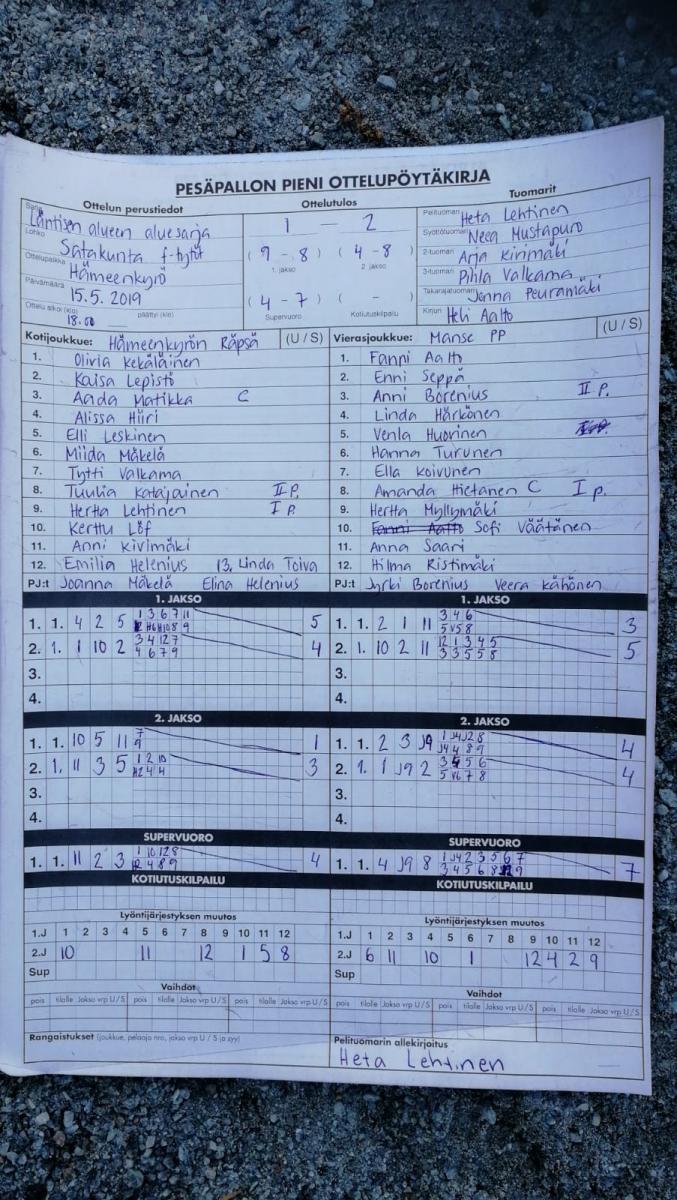 PESÄPALLON PIENI OTTELUPÖYTÄKIRJA
Ottelun perustiedot
Ottelutulos
Tuomarit
Sarja Läntisen alueen aluesarja
Lohko Satakunta f-tytöt
Ottelupaikka Hämeenkyrö
Päivämäärä 15.5. 2019
Ottelu alkoi (klo) 18.00 päättyi (klo)
1 – 2
( 9 - 8 ) ( 4 - 8 )
1. jakso 2. jakso
( 4 - 7 ) ( - )
Supervuoro Kotiutuskilpailu
Pelituomari Heta Lehtinen
Syöttötuomari Neea Mustapuro
2-tuomari Arja Kirimäki
3-tuomari Pihla Valkama
Takarajatuomari Jenna Peuramäki
Kirjuri Heli Aalto
Kotijoukkue: Hämeenkyrön Räpsä (U / S)
1. Olivia Kekäläinen
2. Kaisa Lepistö
3. Aada Matikka C
4. Alissa Hiiri
5. Elli Leskinen
6. Miida Mäkelä
7. Tytti Valkama
8. Tuulia Katajainen II P.
9. Hertta Lehtinen I P.
10. Kerttu Löf
11. Anni Kivimäki
12. Emilia Helenius 13. Linda Toiva
PJ:t Joanna Mäkelä Elina Helenius
Vierasjoukkue: Manse PP (U / S)
1. Fanni Aalto
2. Enni Seppä
3. Anni Borenius II P.
4. Linda Härkönen
5. Venla Huovinen
6. Hanna Turunen
7. Ella Koivunen
8. Amanda Hietanen C I p.
9. Hertta Myllymäki
10. Fanni Aalto Sofi Väätänen
11. Anna Saari
12. Hilma Ristimäki
PJ:t Jyrki Borenius Veera Kähönen
1. JAKSO
1. 1. 4 2 5 5
2. 1. 1 10 2 4
3.
4.
1. JAKSO
1. 1. 2 1 11 3
2. 1. 10 2 11 5
3.
4.
2. JAKSO
1. 1. 10 5 11 1
2. 1. 11 3 5 3
3.
4.
2. JAKSO
1. 1. 2 3 J9 4
2. 1. 1 J9 2 4
3.
4.
SUPERVUORO
1. 1. 11 2 3 4
SUPERVUORO
1. 1. 4 J9 8 7
KOTIUTUSKILPAILU
KOTIUTUSKILPAILU
Lyöntijärjestyksen muutos
1.J 1 2 3 4 5 6 7 8 9 10 11 12
2.J 10 11 12 1 5 8
Sup
Lyöntijärjestyksen muutos
1.J 1 2 3 4 5 6 7 8 9 10 11 12
2.J 6 11 10 1 12 4 2 9
Sup
Vaihdot
pois tilalle Jakso vrp U / S pois tilalle Jakso vrp U / S pois tilalle Jakso vrp U / S
Vaihdot
pois tilalle Jakso vrp U / S pois tilalle Jakso vrp U / S pois tilalle Jakso vrp U / S
Rangaistukset (joukkue, pelaaja nro, jakso vrp U / S ja syy)
Pelituomarin allekirjoitus
Heta Lehtinen